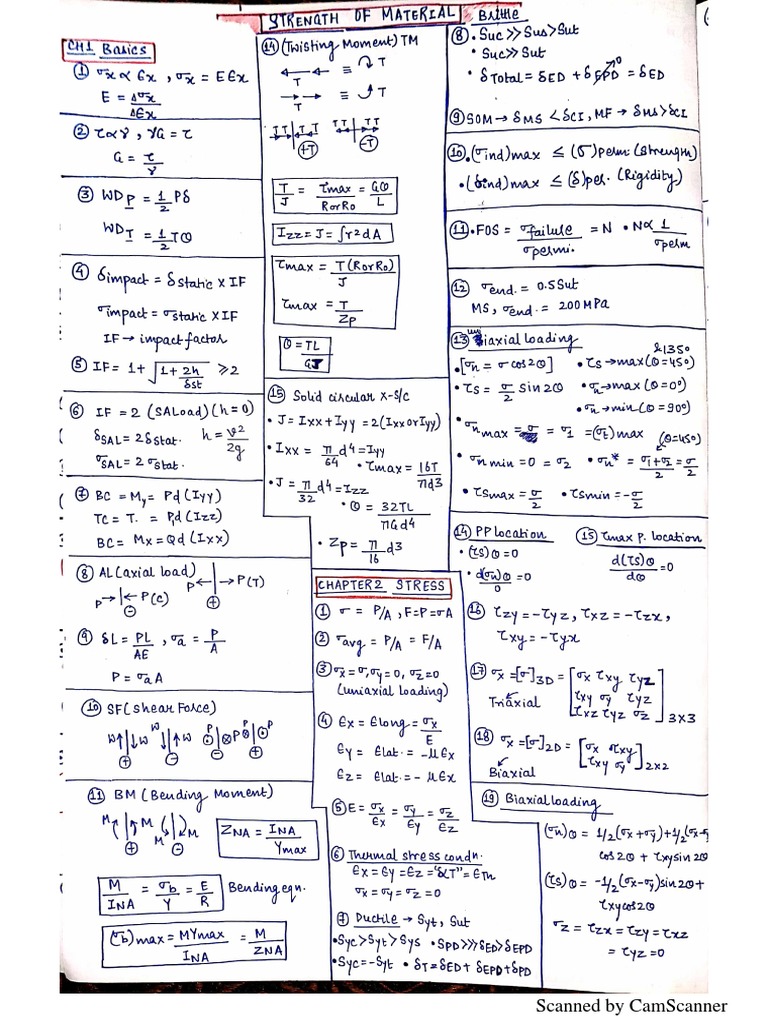 STRENGTH OF MATERIAL
CH1 Basics
① σx ∝ ϵx , σx = Eϵx
E = Δσx / Δϵx
② τ ∝ γ , γG = τ
G = τ / γ
③ WDP = 1/2 Pδ
WDT = 1/2 Tθ
④ δimpact = δstatic × IF
σimpact = σstatic × IF
IF → impact factor
⑤ IF = 1 + √(1 + 2h/δst) ≥ 2
⑥ IF = 2 (SALoad) (h = 0)
δSAL = 2δstat. h = v²/2g
σSAL = 2σstat.
⑦ BC = My = Pd (Iyy)
TC = T. = Pd (Izz)
BC = Mx = Qd (Ixx)
⑧ AL (axial load)
P ← → P(T)
P → ← P(C) ⊕
⊖
⑨ δL = PL/AE , σa = P/A
P = σa A
⑩ SF (shear Force)
W W P P
W W P
⊕ ⊖ ⊖ ⊕
⑪ BM (Bending Moment)
M M M M
⊕ ⊖
ZNA = INA / Ymax
M/INA = σb/Y = E/R Bending eqn.
(σb)max = MYmax/INA = M/ZNA
⑭ (Twisting Moment) TM
T ≡ T
T ≡ T
T T T T T T T T
+T -T
T/J = τmax/R or Ro = Gθ/L
Izz = J = ∫r²dA
τmax = T(R or Ro)/J
τmax = T/Zp
θ = TL/GJ
⑮ Solid circular x-s/c
• J = Ixx + Iyy = 2(Ixx or Iyy)
• Ixx = π/64 d⁴ = Iyy
• τmax = 16T/πd3
• J = π/32 d⁴ = Izz
• θ = 32TL/πGd⁴
• Zp = π/16 d3
CHAPTER 2 STRESS
① σ = P/A , F = P = σA
② σavg = P/A = F/A
③ σx = σ, σy = 0, σz = 0
(uniaxial loading)
④ ϵx = ϵlong = σx/E
ϵy = ϵlat. = -μϵx
ϵz = ϵlat. = -μϵx
⑤ E = σx/ϵx = σy/ϵy = σz/ϵz
⑥ Thermal stress condn.
ϵx = ϵy = ϵz = "αT" = ϵTh
σx = σy = σz = 0
⑦ Ductile → Syt, Sut
• Syc > Syt > Sys • SPD >>> δED > δEPD
• Syc = -Syt • δT = δED + δEPD + δPD
Brittle
⑧ • Suc >> Sus > Sut
• Suc >> Sut
• δTotal = δED + δEPD⁰ = δED
⑨ SOM → δMS < δCI, MF → δMS > δCI
⑩ • (σind)max ≤ (σ)perm. (Strength)
• (δind)max ≤ (δ)per. (Rigidity)
⑪ • FOS = σfailure/σpermi. = N • N ∝ 1/σperm
⑫ σend. = 0.5Sut
MS, σend. = 200 MPa
⑬ uniaxial loading
&135°
• [σn = σ cos2θ] • τs → max (θ = 45°)
• τs = σ/2 sin2θ • σn → max (θ = 0°)
• σn → min (θ = 90°)
• σn max = σ = σ1 = (σt)max (θ = 45°)
• σn min = 0 = σ2 • σn* = σ1+σ2/2 = σ/2
• τs max = σ/2 • τs min = -σ/2
⑭ PP location
• (τs)θ = 0
• d(σn)θ/0 = 0
⑮ τmax p. location
d(τs)θ/dθ = 0
⑯ τzy = -τyz, τxz = -τzx,
τxy = -τyx
⑰ σx = [σ]3D = [σx τxy τyz
τxy σy τyz
τxz τyz σz] 3×3
Triaxial
⑱ σx = [σ]2D = [σx τxy
τxy σy] 2×2
Biaxial
⑲ Biaxial loading
(σn)θ = 1/2(σx+σy)+1/2(σx-σ
cos2θ + τxy sin 2θ
(τs)θ = -1/2(σx-σy)sin2θ +
τxy cos2θ
σz = τzx = τzy = τxz
= τyz = 0
Scanned by CamScanner